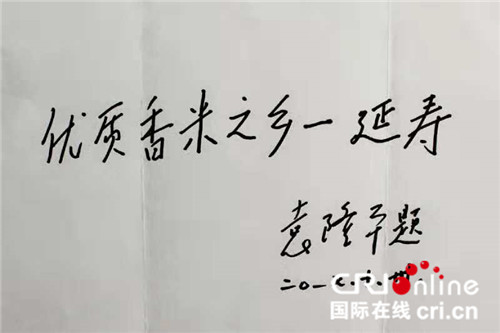 优质香米之乡一延寿
袁隆平题
CRIonline
国际在线 cri.cn